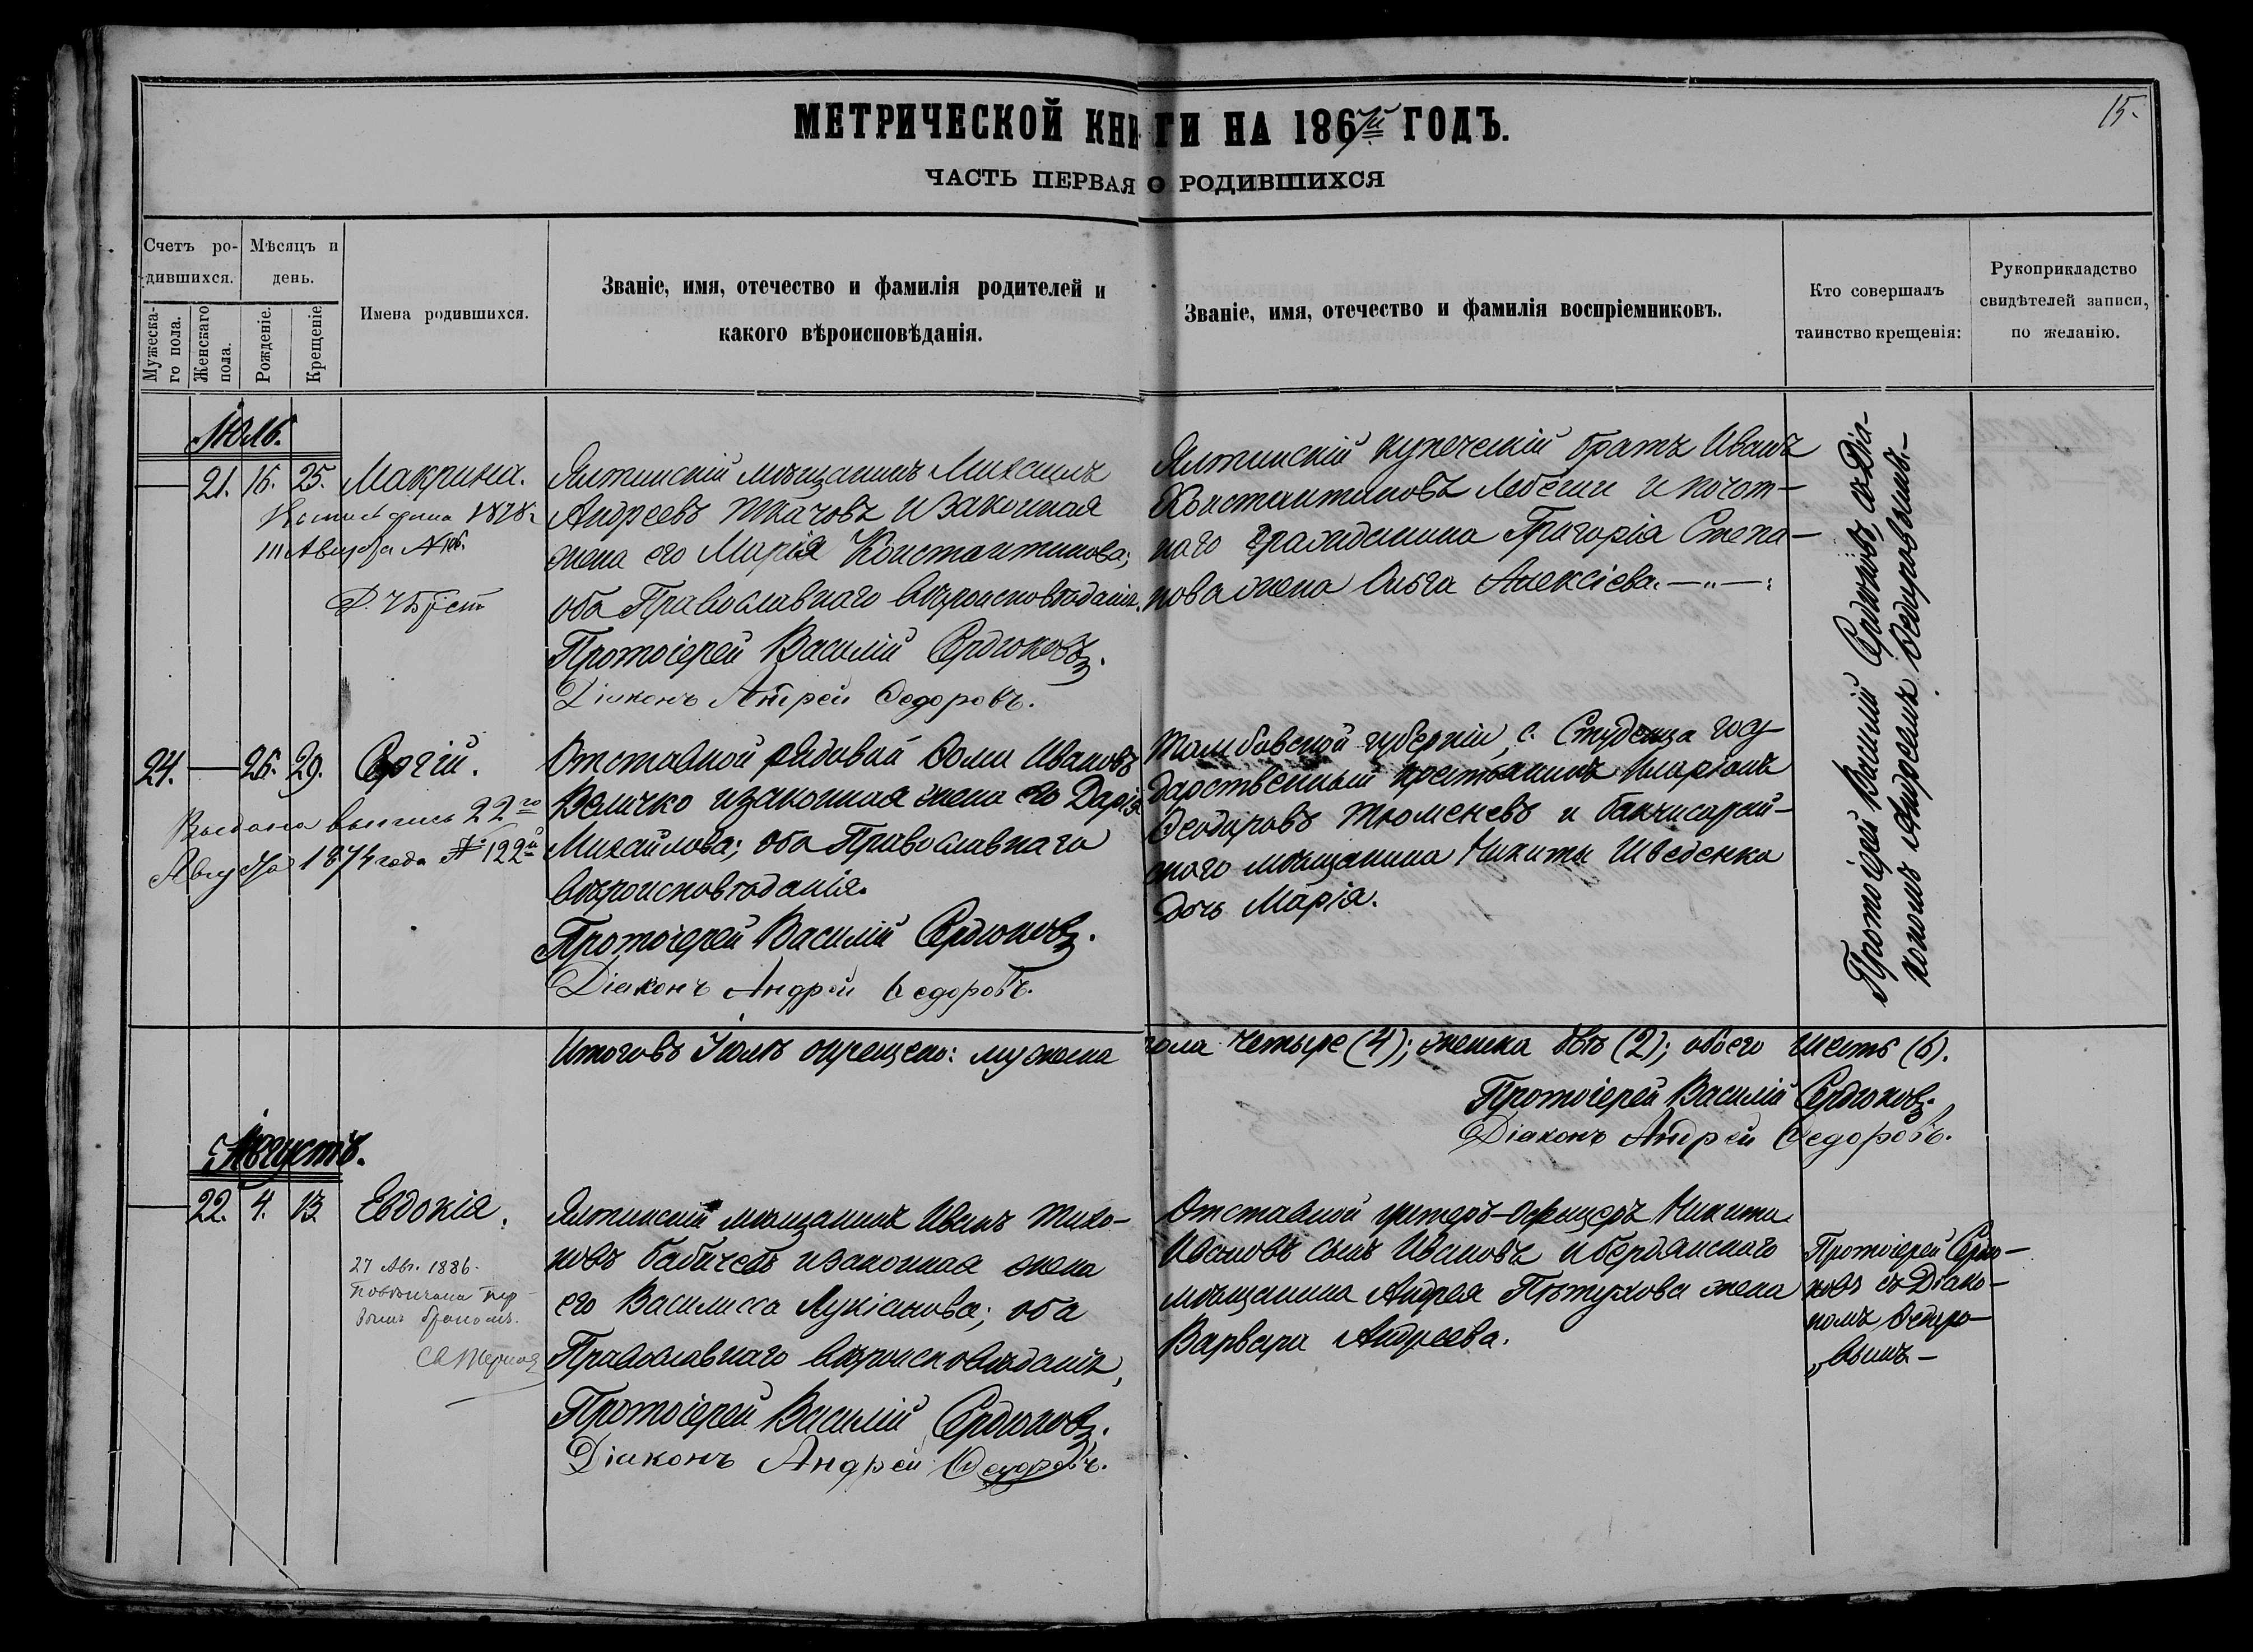 15.
МЕТРИЧЕСКОЙ КНИГИ НА 1867й ГОДЪ.
ЧАСТЬ ПЕРВАЯ О РОДИВШИХСЯ
Счетъ ро-
дившихся.
Мужеска-
го пола.
Женскаго
пола.
Мѣсяцъ и
день.
Рожденіе.
Крещеніе
Имена родившихся.
Званіе, имя, отечество и фамилія родителей и
какого вѣроисповѣданія.
Званіе, имя, отечество и фамилія воспріемниковъ.
Кто совершалъ
таинство крещенія:
Рукоприкладство
свидѣтелей записи,
по желанію.
Іюль.
21. 16. 25. Макрина.
Августа
Ялтинскій мѣщанинъ Михаилъ
Андреевъ Ткачовъ и законная
жена его Марія Константинова;
оба Православнаго вѣроисповѣданія.
Протоіерей Василій Сердюковъ.
Діаконъ Андрей Федоровъ.
Ялтинскій купеческій братъ Иванъ
Константиновъ и почот-
наго гражданина Григорія Степа-
нова жена Ольга Алексіева.
Протоіерей Василій Сердюковъ съ Діа-
кономъ Андреемъ Федоровымъ.
24. — 26. 29. Сергій.
Выдана выпись 22го
Августа 1874 года № 122й
Отставной рядовой Фома Ивановъ
Величко и законная жена его Дарія
Михайлова; оба Православнаго
вѣроисповѣданія.
Протоіерей Василій Сердюковъ.
Діаконъ Андрей Федоровъ.
Тамбовской губерніи, с. Студенца госу-
дарственный крестьянинъ Иларіонъ
Феодоровъ Тюменевъ и бахчисарай-
скаго мѣщанина Никиты Шведенка
дочь Марія.
Итого въ Іюлѣ окрещено: мужеска пола четыре (4); женска двѣ (2); обоего шесть (6).
Протоіерей Василій Сердюковъ.
Діаконъ Андрей Федоровъ.
Августъ.
22. 4. 13. Евдокія.
27 Авг. 1886.
Повѣнчана пер-
вымъ бракомъ.
Ялтинскій мѣщанинъ Иванъ Тихо-
новъ Бабичевъ и законная жена
его Василисса Лукіанова; оба
Православнаго вѣроисповѣданія,
Протоіерей Василій Сердюковъ.
Діаконъ Андрей Федоровъ.
Отставной унтеръ-офицеръ Никита
Ивановъ сынъ Ивановъ и бердянскаго
мѣщанина Андрея Пѣтухова жена
Варвара Андреева.
Протоіерей Сердю-
ковъ съ Діако-
номъ Федоро-
вымъ —